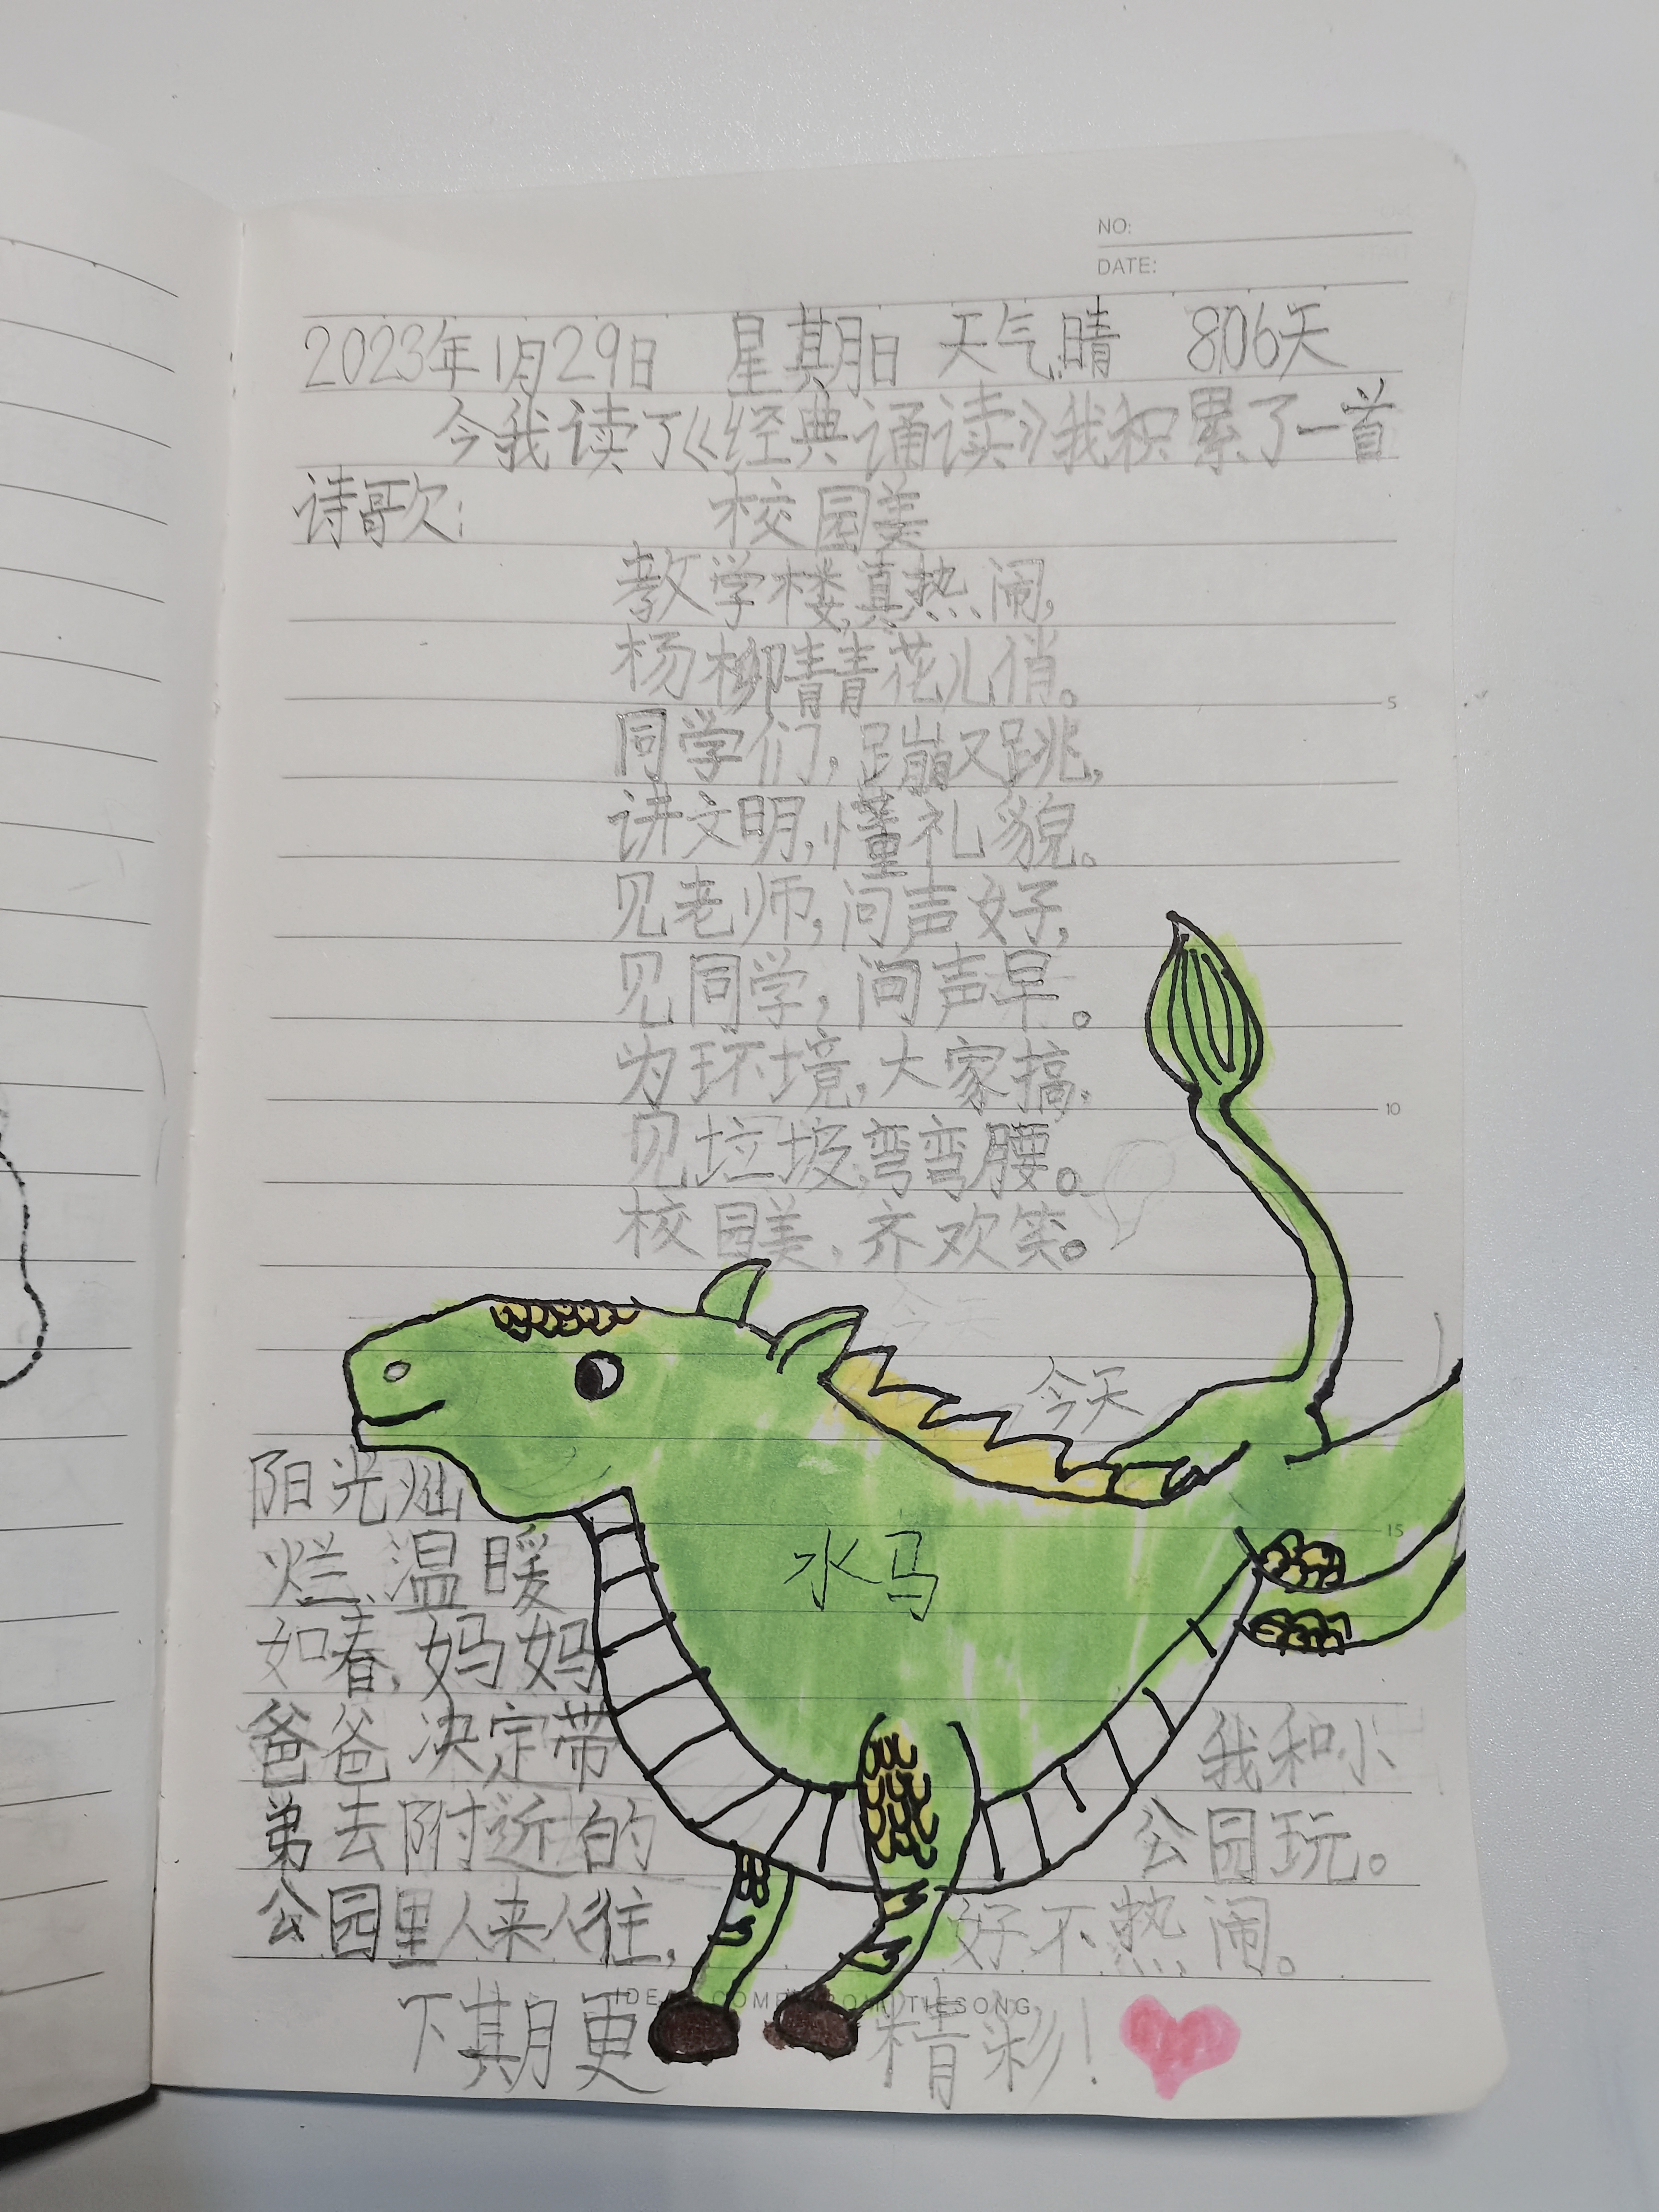 NO:
DATE:
2023年1月29日 星期日 天气晴 806天
今我读了《经典诵读》我积累了一首
诗歌:
校园美
教学楼,真热闹,
杨柳青青花儿俏。
同学们,蹦又跳,
讲文明,懂礼貌。
见老师,问声好,
见同学,问声早。
为环境,大家搞,
见垃圾,弯弯腰。
校园美,齐欢笑。
今天
阳光灿
烂,温暖
如春,妈妈
爸爸决定带 我和小
弟去附近的 公园玩。
公园里人来人往, 好不热闹。
下期更 精彩!
水马
5
10
15